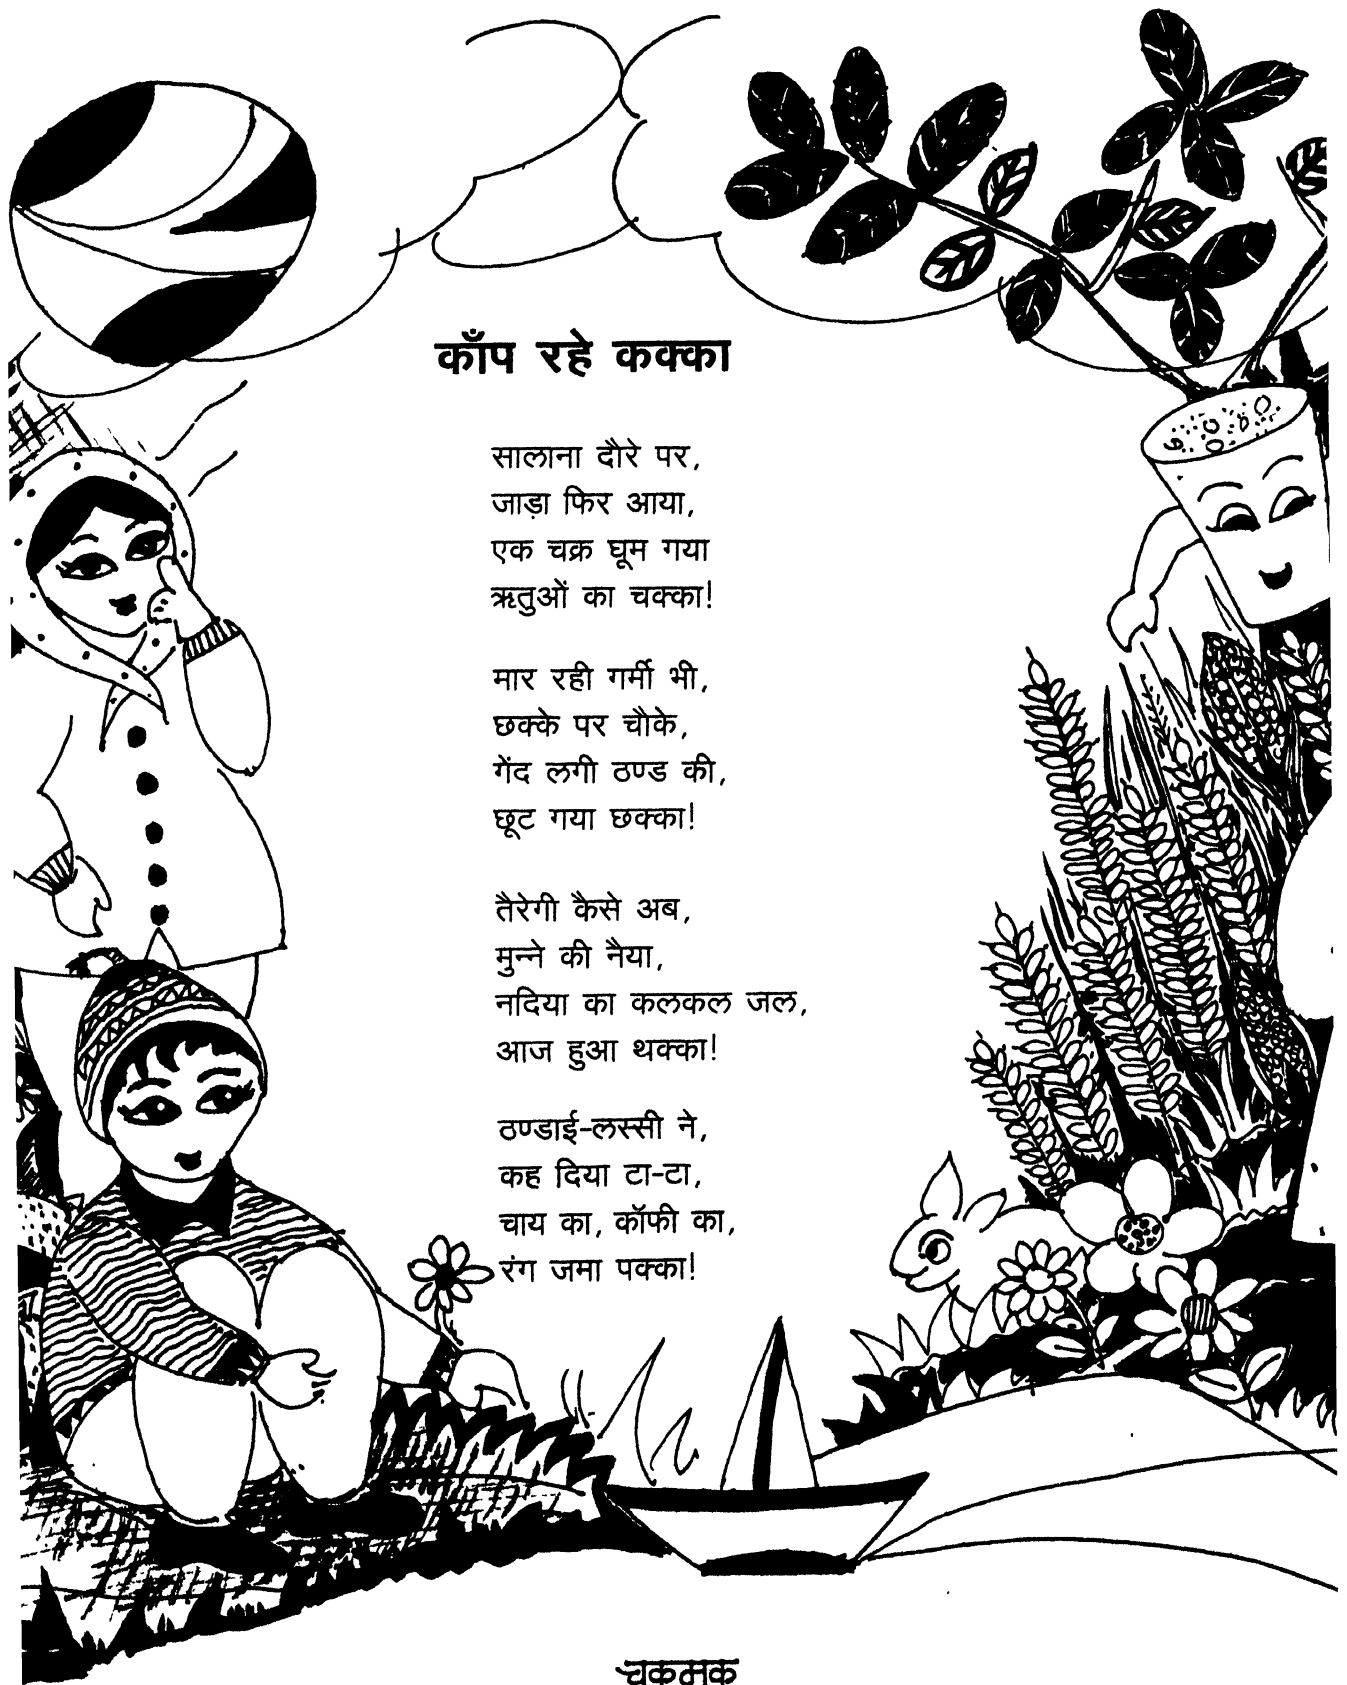 काँप रहे कक्का
सालाना दौरे पर,
जाड़ा फिर आया,
एक चक्र घूम गया
ऋतुओं का चक्का!
मार रही गर्मी भी,
छक्के पर चौके,
गेंद लगी ठण्ड की,
छूट गया छक्का!
तैरेगी कैसे अब,
मुन्ने की नैया,
नदिया का कलकल जल,
आज हुआ थक्का!
ठण्डाई-लस्सी ने,
कह दिया टा-टा,
चाय का, कॉफी का,
रंग जमा पक्का!
चकमक